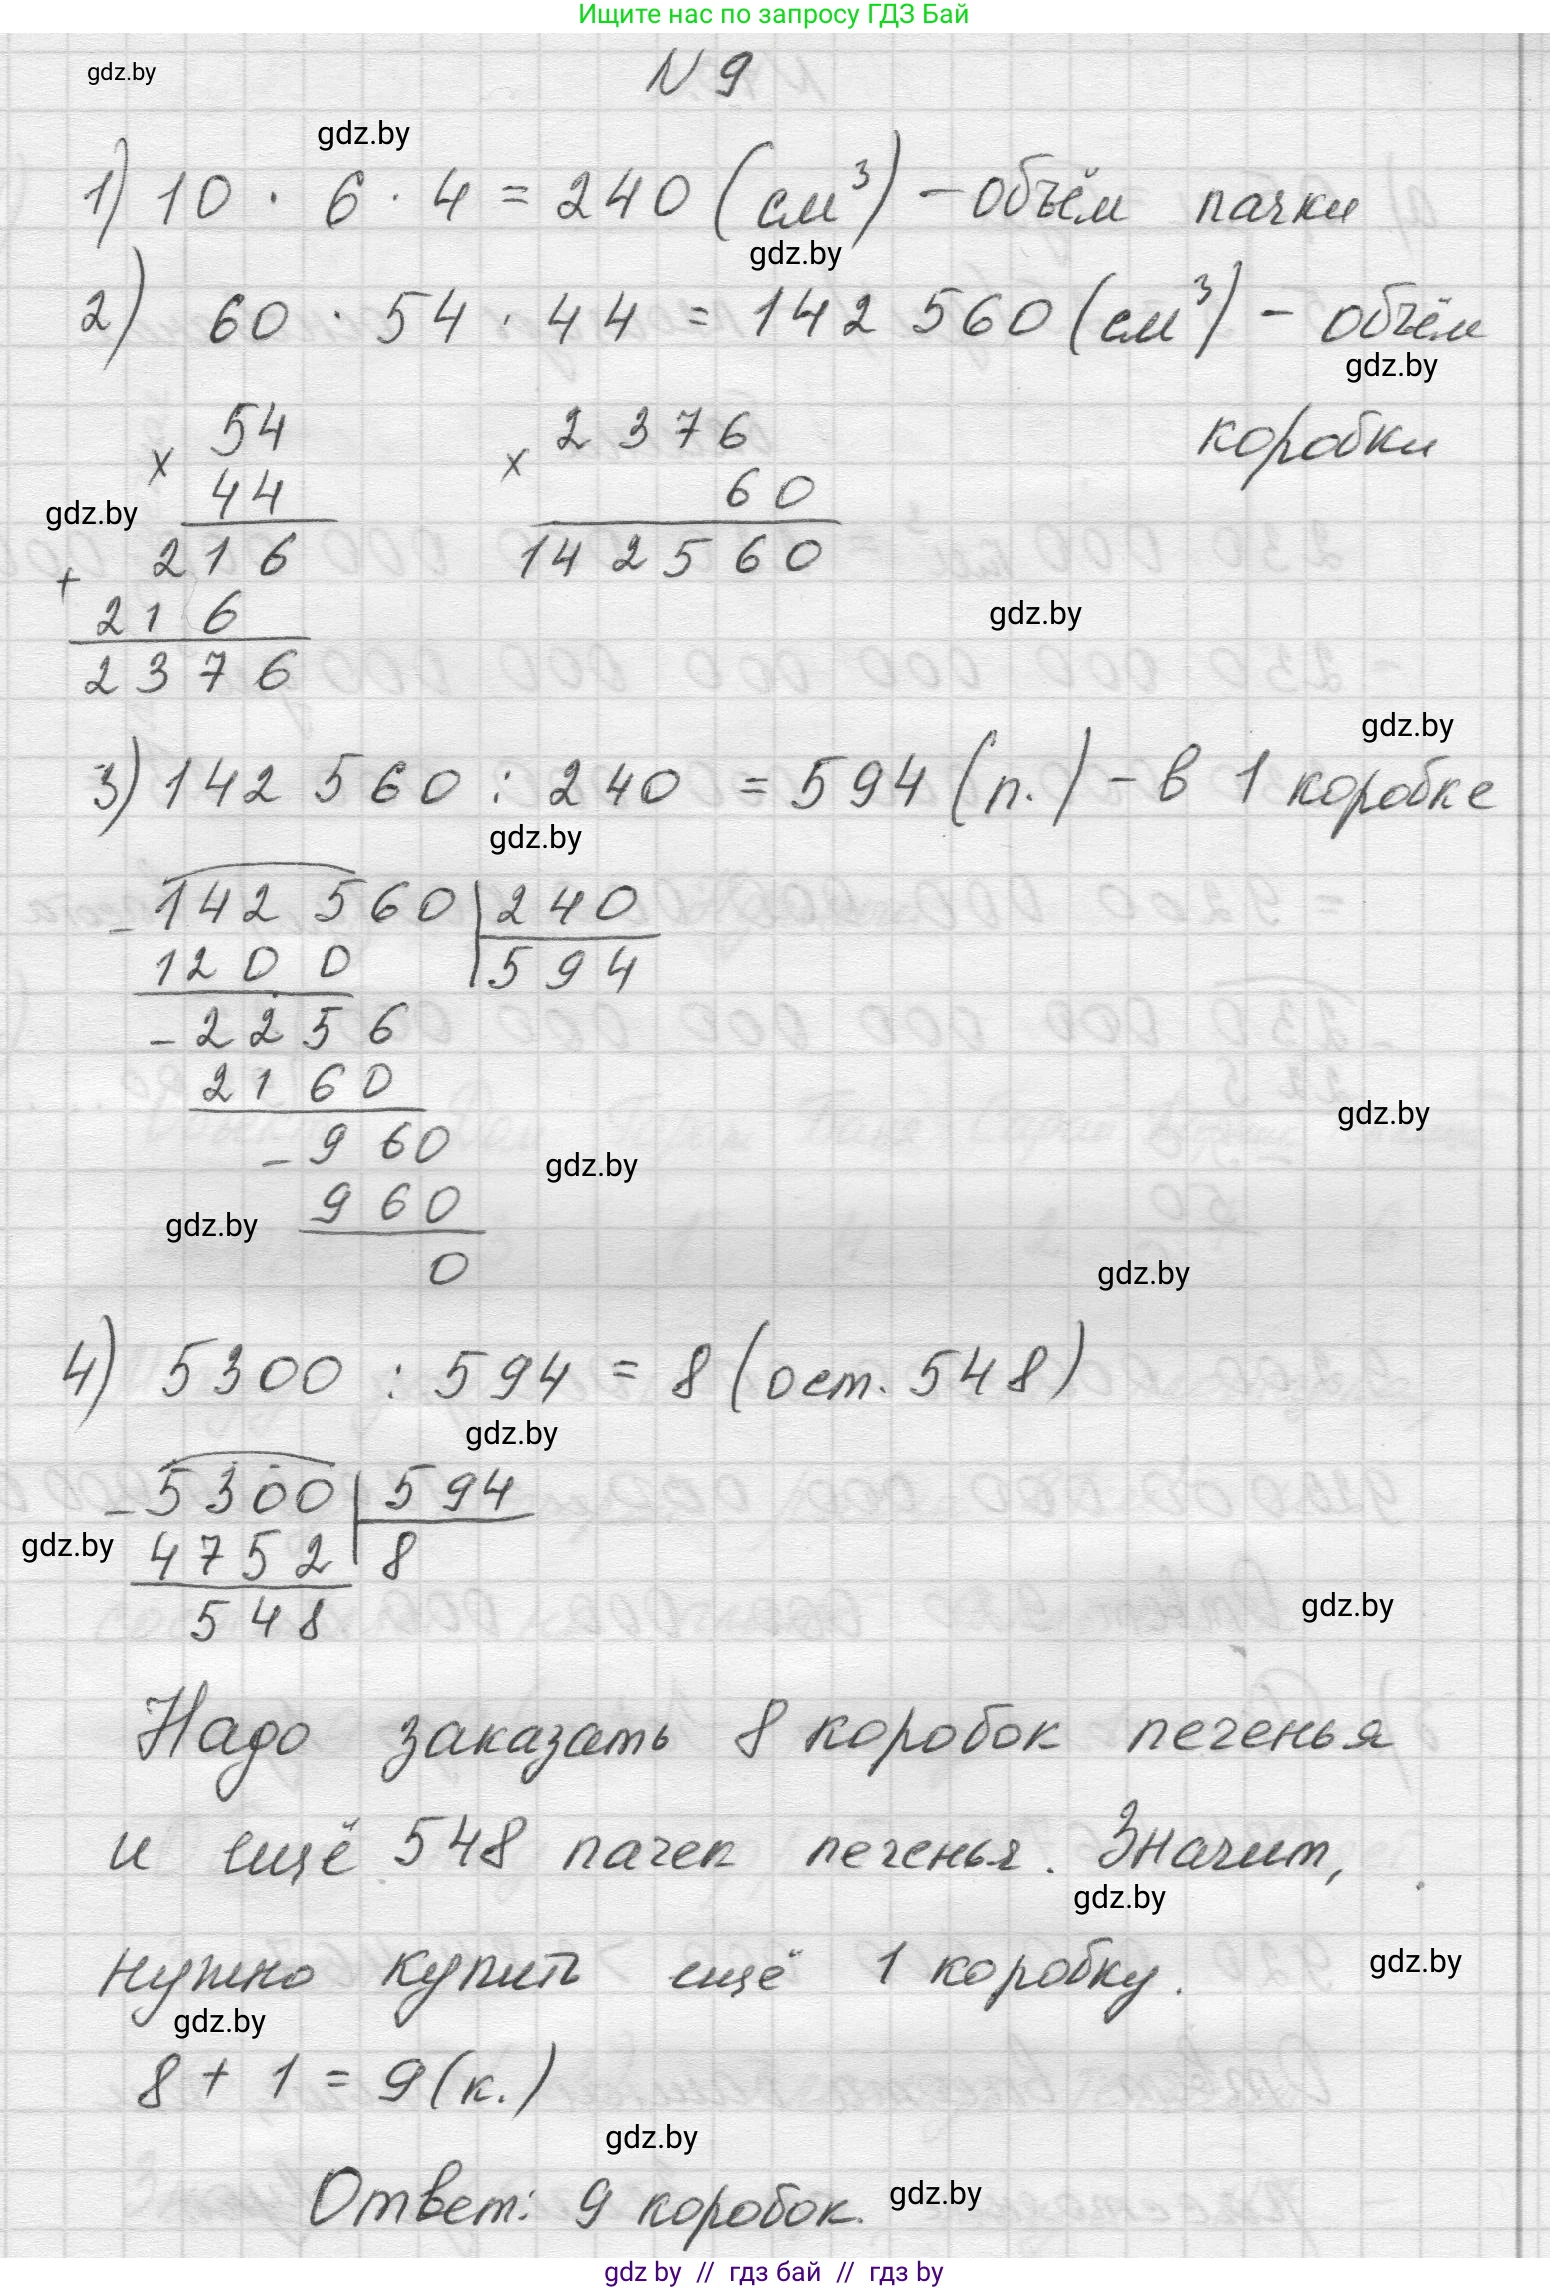 Ищите нас по запросу ГДЗ Бай
N 9
gdz.by
gdz.by
1) 10 · 6 · 4 = 240 (см³) – объём пачки
gdz.by
2) 60 · 54 · 44 = 142 560 (см³) – объём
gdz.by
коробки
54 2376
× ×
44 60
gdz.by
216 142560
+
216
gdz.by
2376
gdz.by
3) 142 560 : 240 = 594 (п.) – в 1 коробке
gdz.by
– 142 560 | 240
1200 | 594
– 2256
2160
gdz.by
– 960
gdz.by
960
gdz.by
0
gdz.by
4) 5300 : 594 = 8 (ост. 548)
gdz.by
– 5300 | 594
gdz.by
4752 | 8
gdz.by
548
Надо заказать 8 коробок печенья
и ещё 548 пачек печенья. Значит,
gdz.by
нужно купить ещё 1 коробку.
gdz.by
gdz.by
8 + 1 = 9 (к.)
gdz.by
Ответ: 9 коробок.
gdz.by
gdz by // гдз бай // гдз by